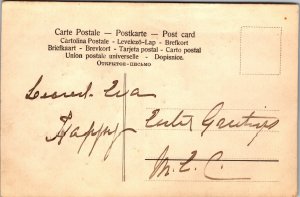 Carte Postale - Postkarte - Post card
Cartolina Postale - Levelező-Lap - Brefkort
Briefkaart - Brevkort - Tarjeta postal - Carto postal
Union postale universelle - Dopisnica.
Открытое-письмо
Eva
Happy Easter Greetings
M. E. C.